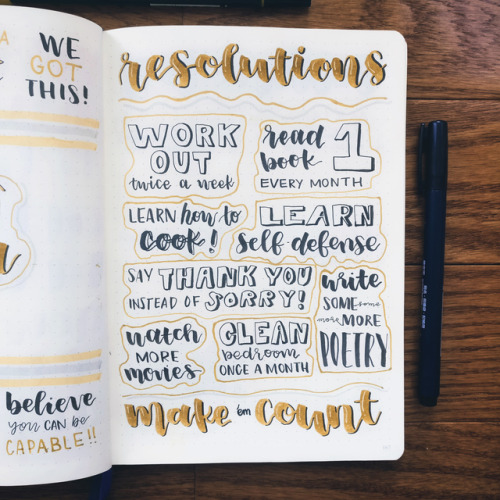 WE
GOT
THIS!
believe
you CAN be
CAPABLE!!
resolutions
WORK
OUT
twice a week
read
book 1
EVERY MONTH
LEARN how to
cook!
LEARN
self-defense
SAY THANK YOU
INSTEAD OF SORRY!
write
SOME some
more MORE
POETRY
watch
MORE
movies
CLEAN
bedroom
ONCE A MONTH
make 'em count